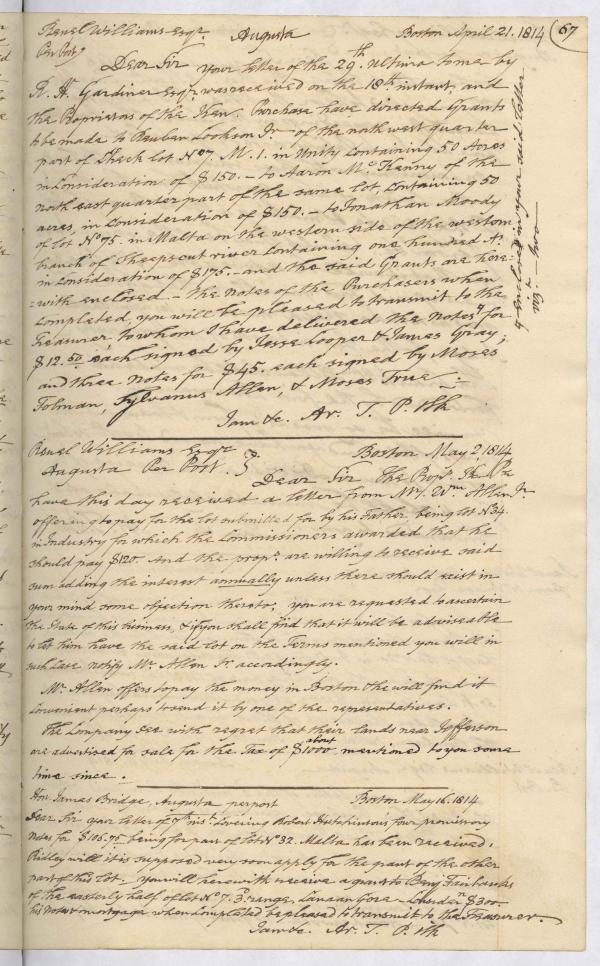 Reuel Williams Esqr. Augusta Boston April 21. 1814 67
Per Post
Dear Sir Your letter of the 29th Ultimo to me by
R. H. Gardiner Esqr. was received on the 18th instant, and
the Proprietors of the Ken. Purchase have directed Grants
to be made to Reuben Cookson Jr. of the northwest quarter
part of Check lot No 7. M. 1. in Unity containing 50 Acres
in consideration of $150. - to Aaron McKenny of the
north east quarter part of the same lot, containing 50
acres, in consideration of $150. - to Jonathan Moody
of lot No 75. in Malta on the western side of the western
branch of Sheepscut river containing one hundred As.
in consideration of $175. - and the said Grants are here=
=with enclosed. - the notes of the Purchasers when
completed you will be pleased to transmit to the
Treasurer, to whom I have delivered the Notes for
$12.50 each signed by Jesse Cooper & James Gray;
and three notes for $45. each signed by Moses
Tolman, Sylvanus Allen, & Moses True
I am &c. Ar. T. P. Clk
enclosed in your said letter
viz.
Reuel Williams Esqr. Boston May 2. 1814
Augusta Per Post.
Dear Sir The Propr. Ken. Pe
have this day received a letter from Mr. Wm Allen Jr.
offering to pay for the lot submitted for by his Father being lot No 34.
in Industry for which the Commissioners awarded that he
should pay $120. And the propr. are willing to receive said
sum adding the interest annually unless there should exist in
your mind some objection thereto; you are requested to ascertain
the State of this business, & if you shall find that it will be adviseable
to let him have the said lot on the Terms mentioned you will in
such case notify Mr. Allen Jr. accordingly.
Mr. Allen offers to pay the money in Boston & he will find it
convenient perhaps to send it by one of the representatives.
The Company see with regret that their lands near Jefferson
are advertised for sale for the Tax of about $1000 mentioned to you some
time since.
Hon. James Bridge, Augusta per post Boston May 16. 1814
Dear Sir your letter of 7th inst. covering Robert Hutchinsons four promissory
Notes for $106.75 being for part of lot No 32. Malta has been received.
Ridley will it is supposed very soon apply for the grant of the other
part of this lot. You will herewith receive a grant to Benj Fairbanks
of the easterly half of lot No 7. 3d. range, Canaan Gore - Considern $300.
his Notes & mortgage when completed be pleased to transmit to the Treasurer.
I am &c. Ar. T. P. Clk